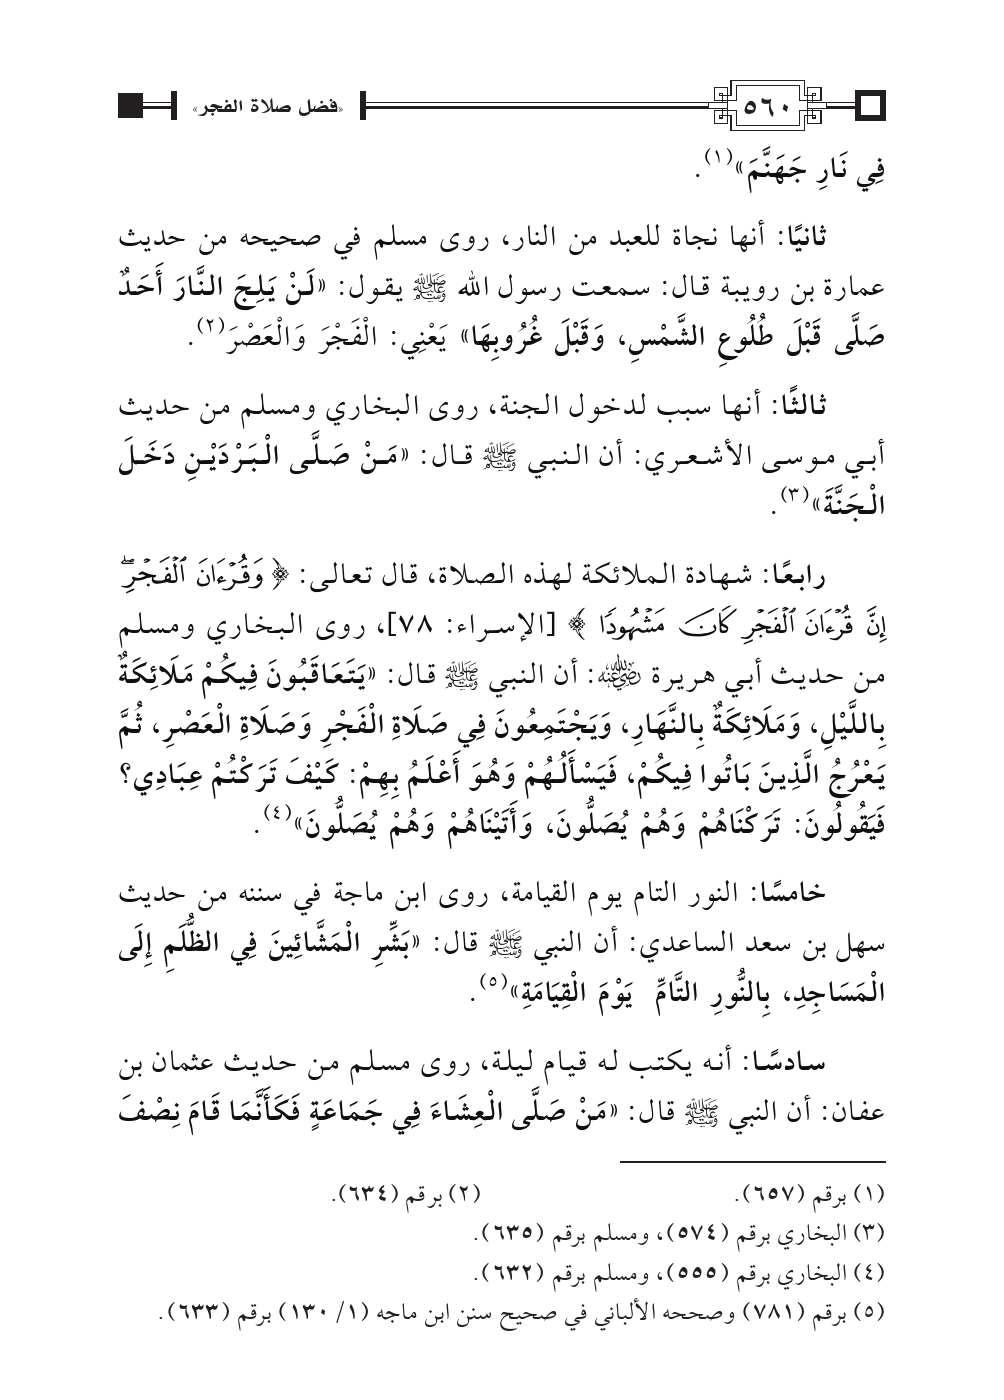 ٥٦٠
«فضل صلاة الفجر»
فِي نَارِ جَهَنَّمَ»(١).
ثانيًا: أنها نجاة للعبد من النار، روى مسلم في صحيحه من حديث
عمارة بن رويبة قال: سمعت رسول الله ﷺ يقول: «لَنْ يَلِجَ النَّارَ أَحَدٌ
صَلَّى قَبْلَ طُلُوعِ الشَّمْسِ، وَقَبْلَ غُرُوبِهَا» يَعْنِي: الْفَجْرَ وَالْعَصْرَ(٢).
ثالثًا: أنها سبب لدخول الجنة، روى البخاري ومسلم من حديث
أبي موسى الأشعري: أن النبي ﷺ قال: «مَنْ صَلَّى الْبَرْدَيْنِ دَخَلَ
الْجَنَّةَ»(٣).
رابعًا: شهادة الملائكة لهذه الصلاة، قال تعالى: ﴿ وَقُرْءَانَ ٱلْفَجْرِۖ
إِنَّ قُرْءَانَ ٱلْفَجْرِ كَانَ مَشْهُودًا ﴾ [الإسراء: ٧٨]، روى البخاري ومسلم
من حديث أبي هريرة رضي الله عنه: أن النبي ﷺ قال: «يَتَعَاقَبُونَ فِيكُمْ مَلَائِكَةٌ
بِاللَّيْلِ، وَمَلَائِكَةٌ بِالنَّهَارِ، وَيَجْتَمِعُونَ فِي صَلَاةِ الْفَجْرِ وَصَلَاةِ الْعَصْرِ، ثُمَّ
يَعْرُجُ الَّذِينَ بَاتُوا فِيكُمْ، فَيَسْأَلُهُمْ وَهُوَ أَعْلَمُ بِهِمْ: كَيْفَ تَرَكْتُمْ عِبَادِي؟
فَيَقُولُونَ: تَرَكْنَاهُمْ وَهُمْ يُصَلُّونَ، وَأَتَيْنَاهُمْ وَهُمْ يُصَلُّونَ»(٤).
خامسًا: النور التام يوم القيامة، روى ابن ماجة في سننه من حديث
سهل بن سعد الساعدي: أن النبي ﷺ قال: «بَشِّرِ الْمَشَّائِينَ فِي الظُّلَمِ إِلَى
الْمَسَاجِدِ، بِالنُّورِ التَّامِّ يَوْمَ الْقِيَامَةِ»(٥).
سادسًا: أنه يكتب له قيام ليلة، روى مسلم من حديث عثمان بن
عفان: أن النبي ﷺ قال: «مَنْ صَلَّى الْعِشَاءَ فِي جَمَاعَةٍ فَكَأَنَّمَا قَامَ نِصْفَ
(١) برقم (٦٥٧). (٢) برقم (٦٣٤).
(٣) البخاري برقم (٥٧٤)، ومسلم برقم (٦٣٥).
(٤) البخاري برقم (٥٥٥)، ومسلم برقم (٦٣٢).
(٥) برقم (٧٨١) وصححه الألباني في صحيح سنن ابن ماجه (١/ ١٣٠) برقم (٦٣٣).